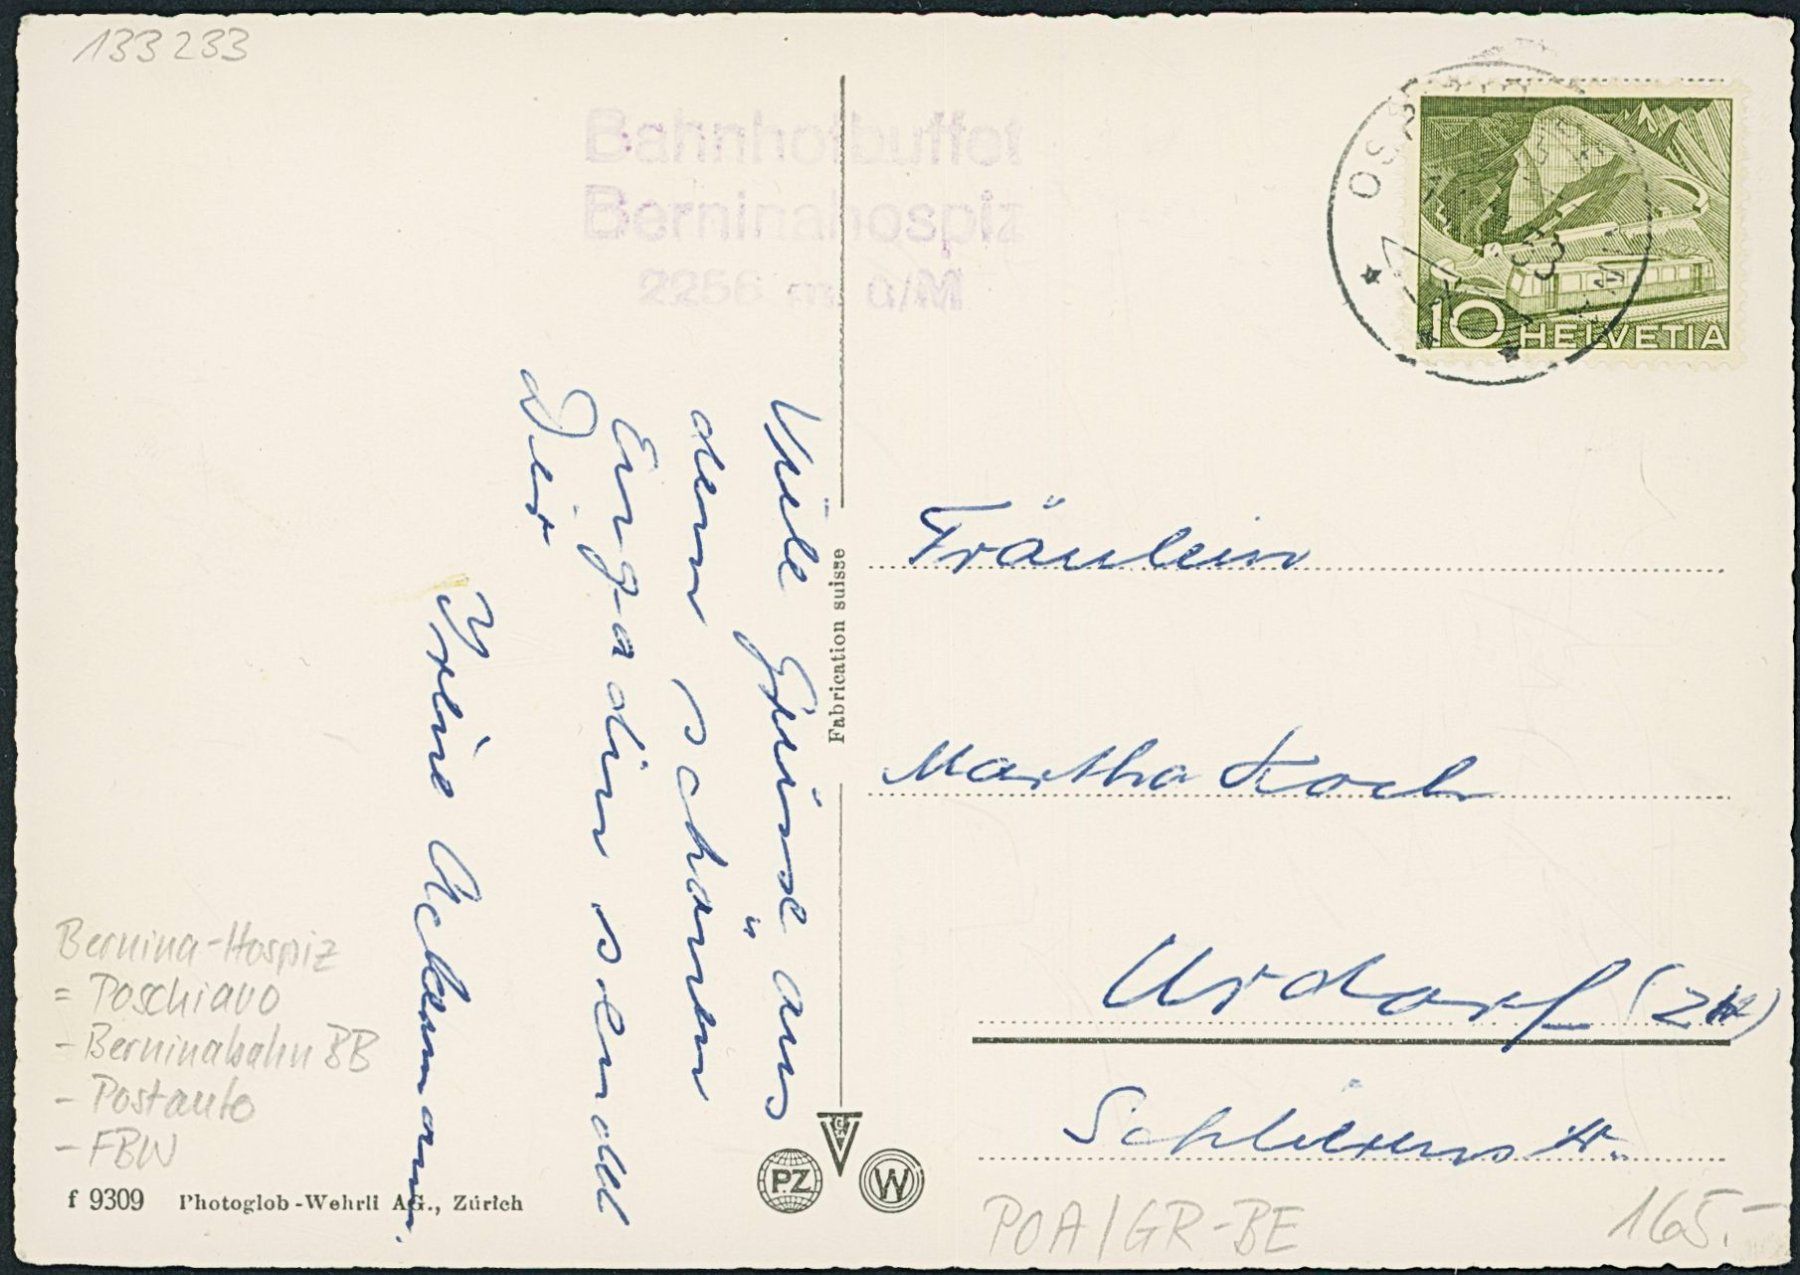 133 233
Bahnhofbuffet
Berninahospiz
2256 m. ü/M
10 HELVETIA
Viele Grüsse aus
dem schönen
Engadin sendet
Dir
Ackermann.
Fabrication suisse
Fräulein
Martha Koch
Urdorf (ZH)
Schlierenstr.
Bernina-Hospiz
= Poschiavo
- Berninabahn BB
- Postauto
- FBW
f 9309 Photoglob-Wehrli AG., Zürich
PZ
W
POA/GR-BE
165.-